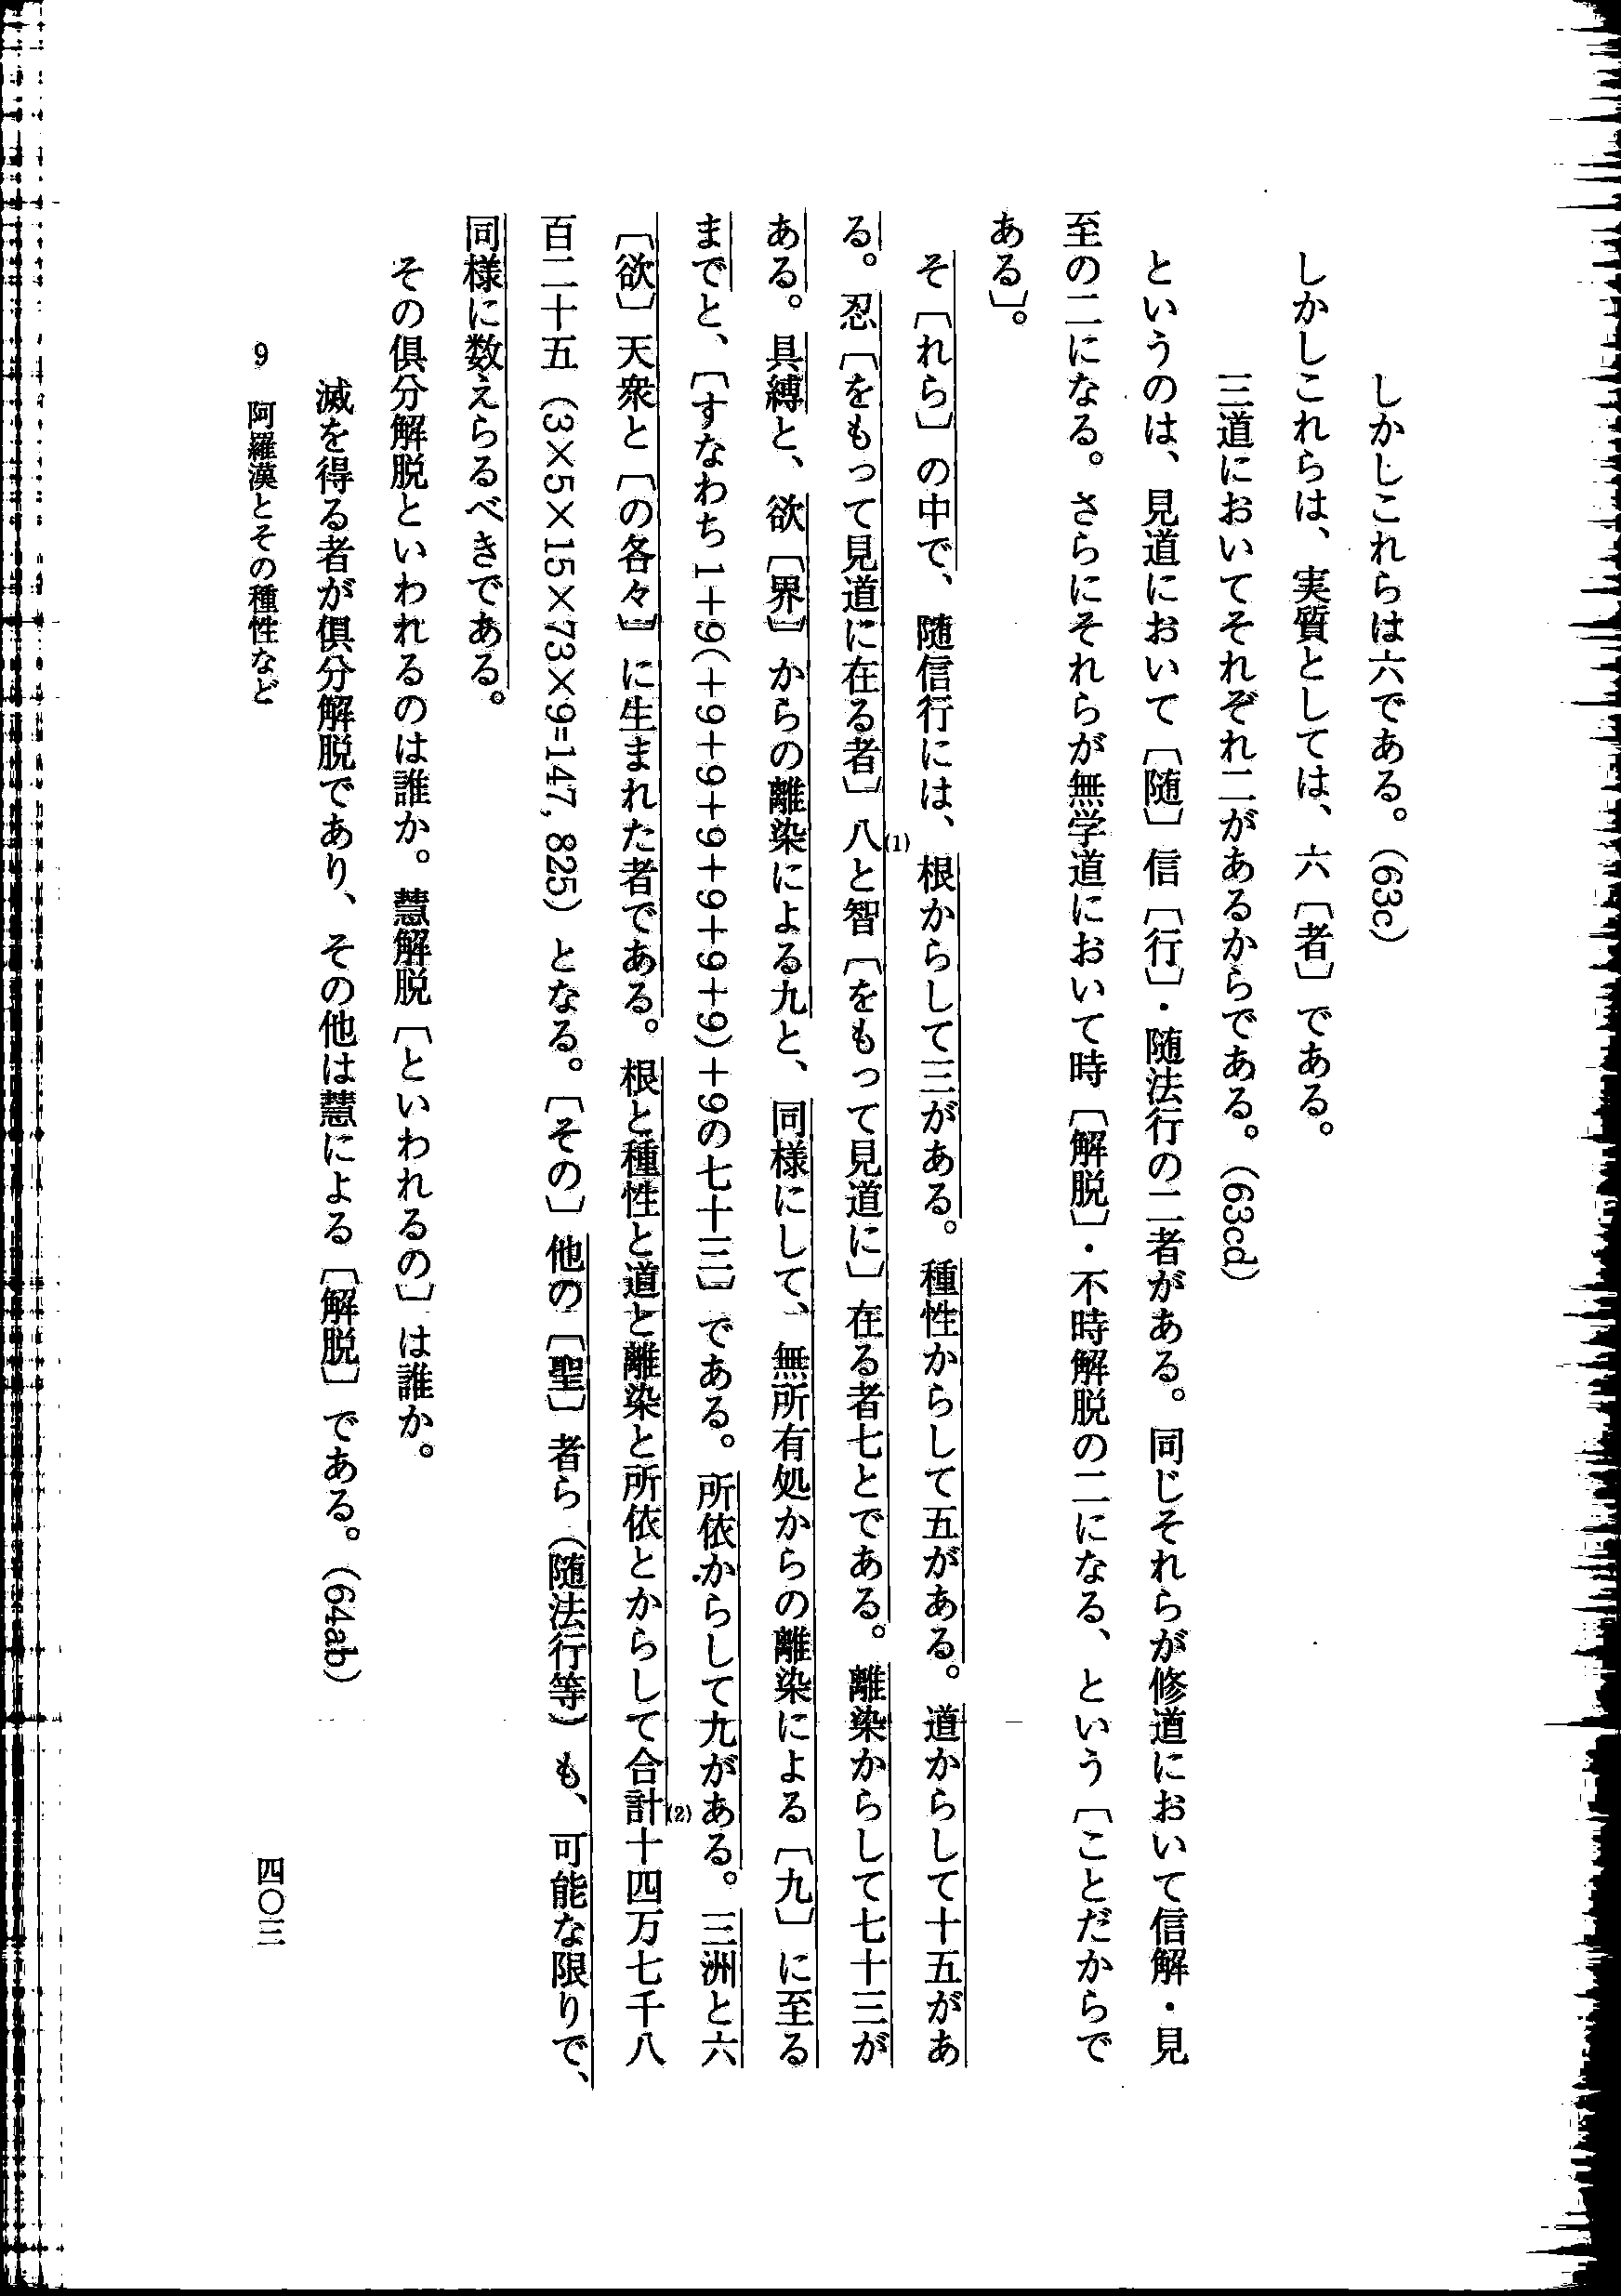 しかしこれらは六である。(63c)
しかしこれらは、実質としては、六〔者〕である。
三道においてそれぞれ二があるからである。(63cd)
というのは、見道において〔随〕信〔行〕・随法行の二者がある。同じそれらが修道において信解・見
至の二になる。さらにそれらが無学道において時〔解脱〕・不時解脱の二になる、という〔ことだからで
ある〕。
そ〔れら〕の中で、随信行には、根からして三がある。種性からして五がある。道からして十五があ
る。忍〔をもって見道に在る者〕八と智〔をもって見道に〕在る者七とである。離染からして七十三が
ある。具縛と、欲〔界〕からの離染による九と、同様にして、無所有処からの離染による〔九〕に至る
までと、〔すなわち1+9(+9+9+9+9+9+9)+9の七十三〕である。所依からして九がある。三洲と六
〔欲〕天衆と〔の各々〕に生まれた者である。根と種性と道と離染と所依とからして合計十四万七千八
百二十五(3×5×15×73×9=147,825)となる。〔その〕他の〔聖〕者ら(随法行等)も、可能な限りで、
同様に数えらるべきである。
その俱分解脱といわれるのは誰か。慧解脱〔といわれるの〕は誰か。
滅を得る者が俱分解脱であり、その他は慧による〔解脱〕である。(64ab)
(1)
(2)
9 阿羅漢とその種性など
四〇三